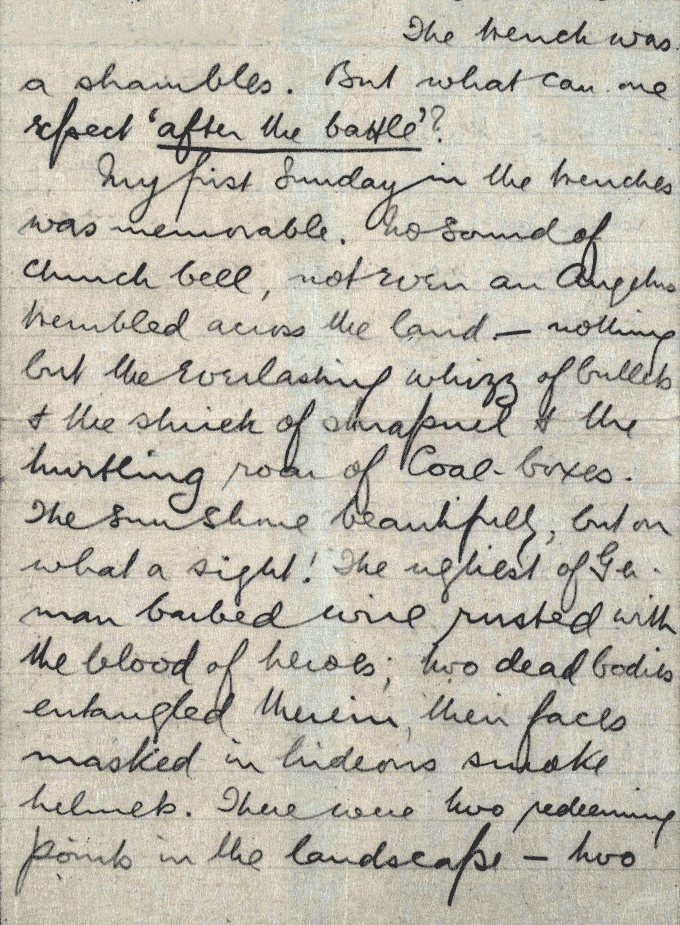 The trench was
a shambles. But what can one
expect 'after the battle'?
My first Sunday in the trenches
was memorable. No sound of
church bell, not even an Angelus
trembled across the land — nothing
but the everlasting whizz of bullets
& the shriek of shrapnel & the
hurtling roar of Coal-boxes.
The sun shone beautifully, but on
what a sight! The ugliest of Ger-
man barbed wire rusted with
the blood of heroes; two dead bodies
entangled therein, their faces
masked in hideous smoke
helmets. There were two redeeming
points in the landscape — two